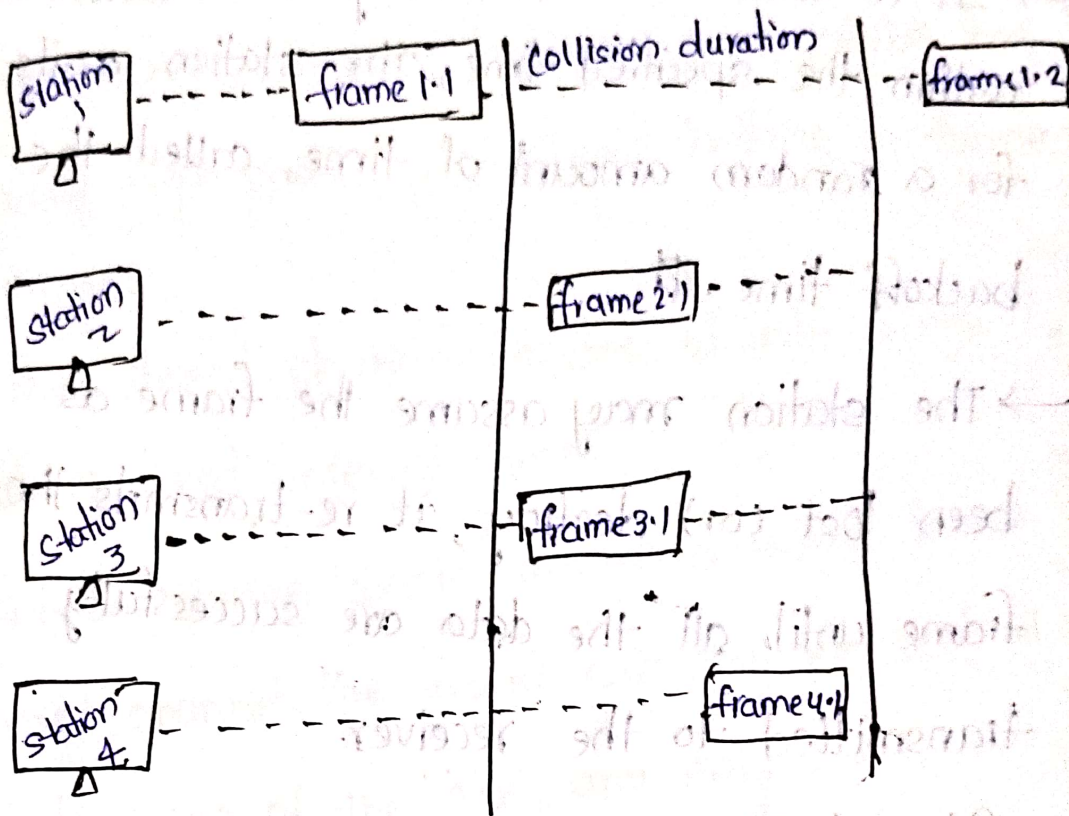 station 1 frame 1.1 collision duration frame 1.2
station 2 frame 2.1
station 3 frame 3.1
station 4 frame 4.1